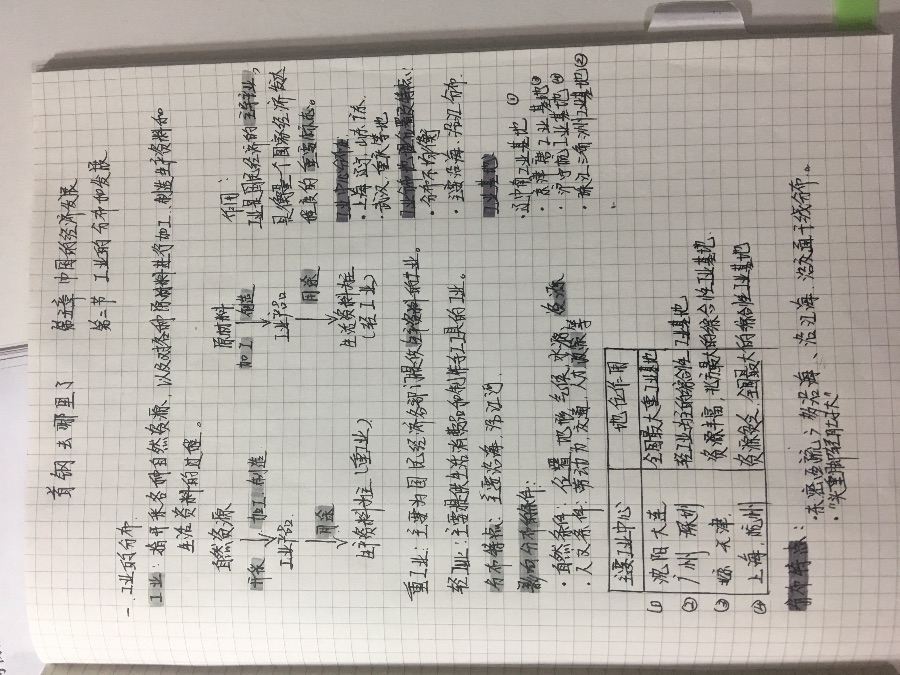 首钢去哪里了
第五章 中国的经济发展
第三节 工业的分布和发展
一.工业的分布
工业:指开采各种自然资源、以及对各种原材料进行加工、制造生产资料和
生活资料的过程。
自然资源
开采 加工、制造
工业产品
用途
生产资料为主(重工业)
原材料
加工 制造
工业产品
用途
生活资料为主
(轻工业)
作用:
工业是国民经济的主导产业,
是衡量一个国家经济发达
程度的重要标志。
工业中心城市
·上海、北京、山东、江苏、
武汉、重庆等地
·分布不均衡
·主要沿海、沿江分布
工业基地
·辽中南工业基地①
·京津唐工业基地③
·沪宁杭工业基地④
·珠江三角洲工业基地②
重工业:主要为国民经济各部门提供生产资料的工业。
轻工业:主要提供生活消费品和制作手工工具的工业。
分布特点:主要沿海,沿江河.
影响分布条件:
·自然条件:位置、地形、气候、水源、资源
·人文条件:劳动力,交通,人力,政策等
主要工业中心 地位作用
① 沈阳 大连 全国最大重工业基地
② 广州 深圳 轻工业为主的综合性工业基地
③ 北京 天津 资源丰富,北方最大的综合性工业基地.
④ 上海、杭州 资源贫乏、全国最大的综合性工业基地
分布特点:
·东密西疏、沿海、沿江海、沿交通干线分布。
·“头重脚轻肚子大”